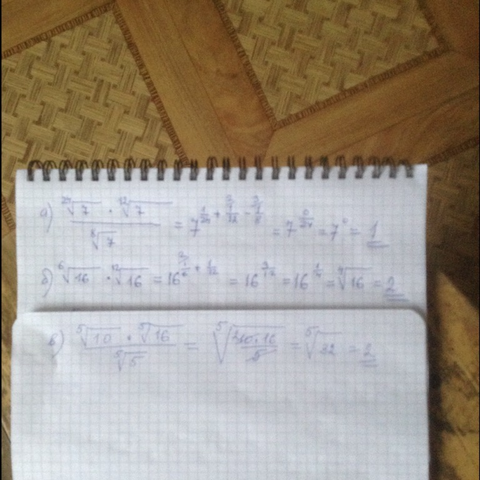 а) (²⁴√7 · ¹²√7) / ⁸√7 = 7^(1/24 + 1/12 - 1/8) = 7^(0/24) = 7⁰ = 1
б) ⁶√16 · ¹²√16 = 16^(1/6 + 1/12) = 16^(3/12) = 16^(1/4) = ⁴√16 = 2
в) (⁵√10 · ⁵√16) / ⁵√5 = ⁵√(10·16/5) = ⁵√32 = 2